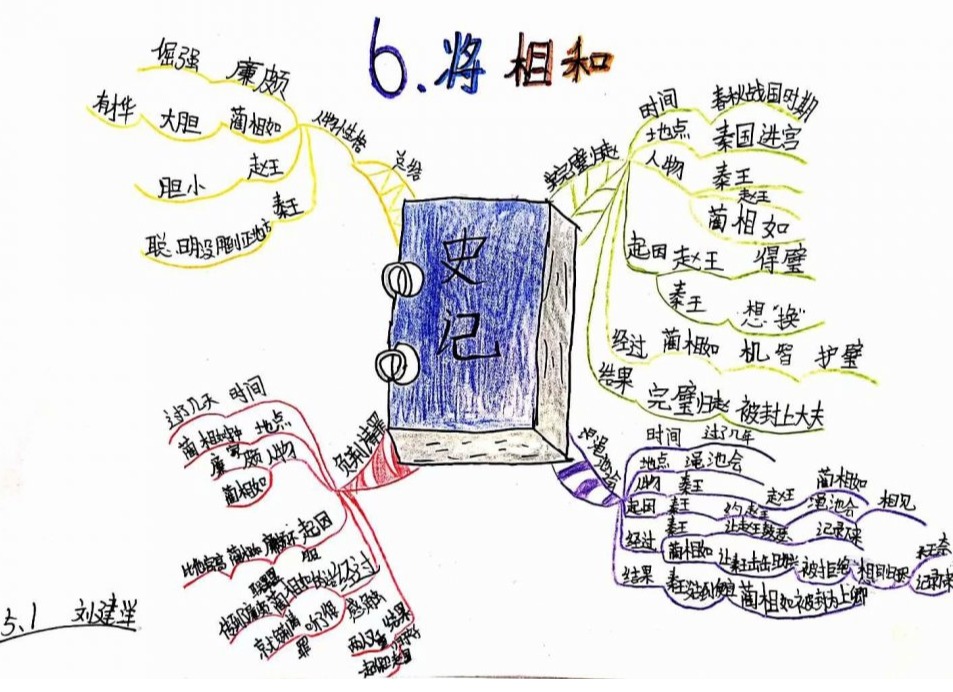 6.将相和
史记
完璧归赵
时间 春秋战国时期
地点 秦国进宫
人物 秦王
赵王
蔺相如
起因 赵王 得璧
秦王 想"换"
经过 蔺相如 机智 护璧
结果 完璧归赵 被封上大夫
渑池会
时间 过了几年
地点 渑池会
人物 秦王 赵王 蔺相如
起因 秦王 约赵王 渑池会 相见
经过 秦王 让赵王鼓瑟 记录下来
蔺相如 让秦王击缶 被拒绝
结果 蔺相如被封为上卿
负荆请罪
时间 过了几天
地点
人物 廉颇
蔺相如
起因
经过
结果
总结
人物性格
廉颇 倔强
蔺相如 大胆 有才华
赵王 胆小
秦王 聪明没用到正地方
5.1 刘建洋